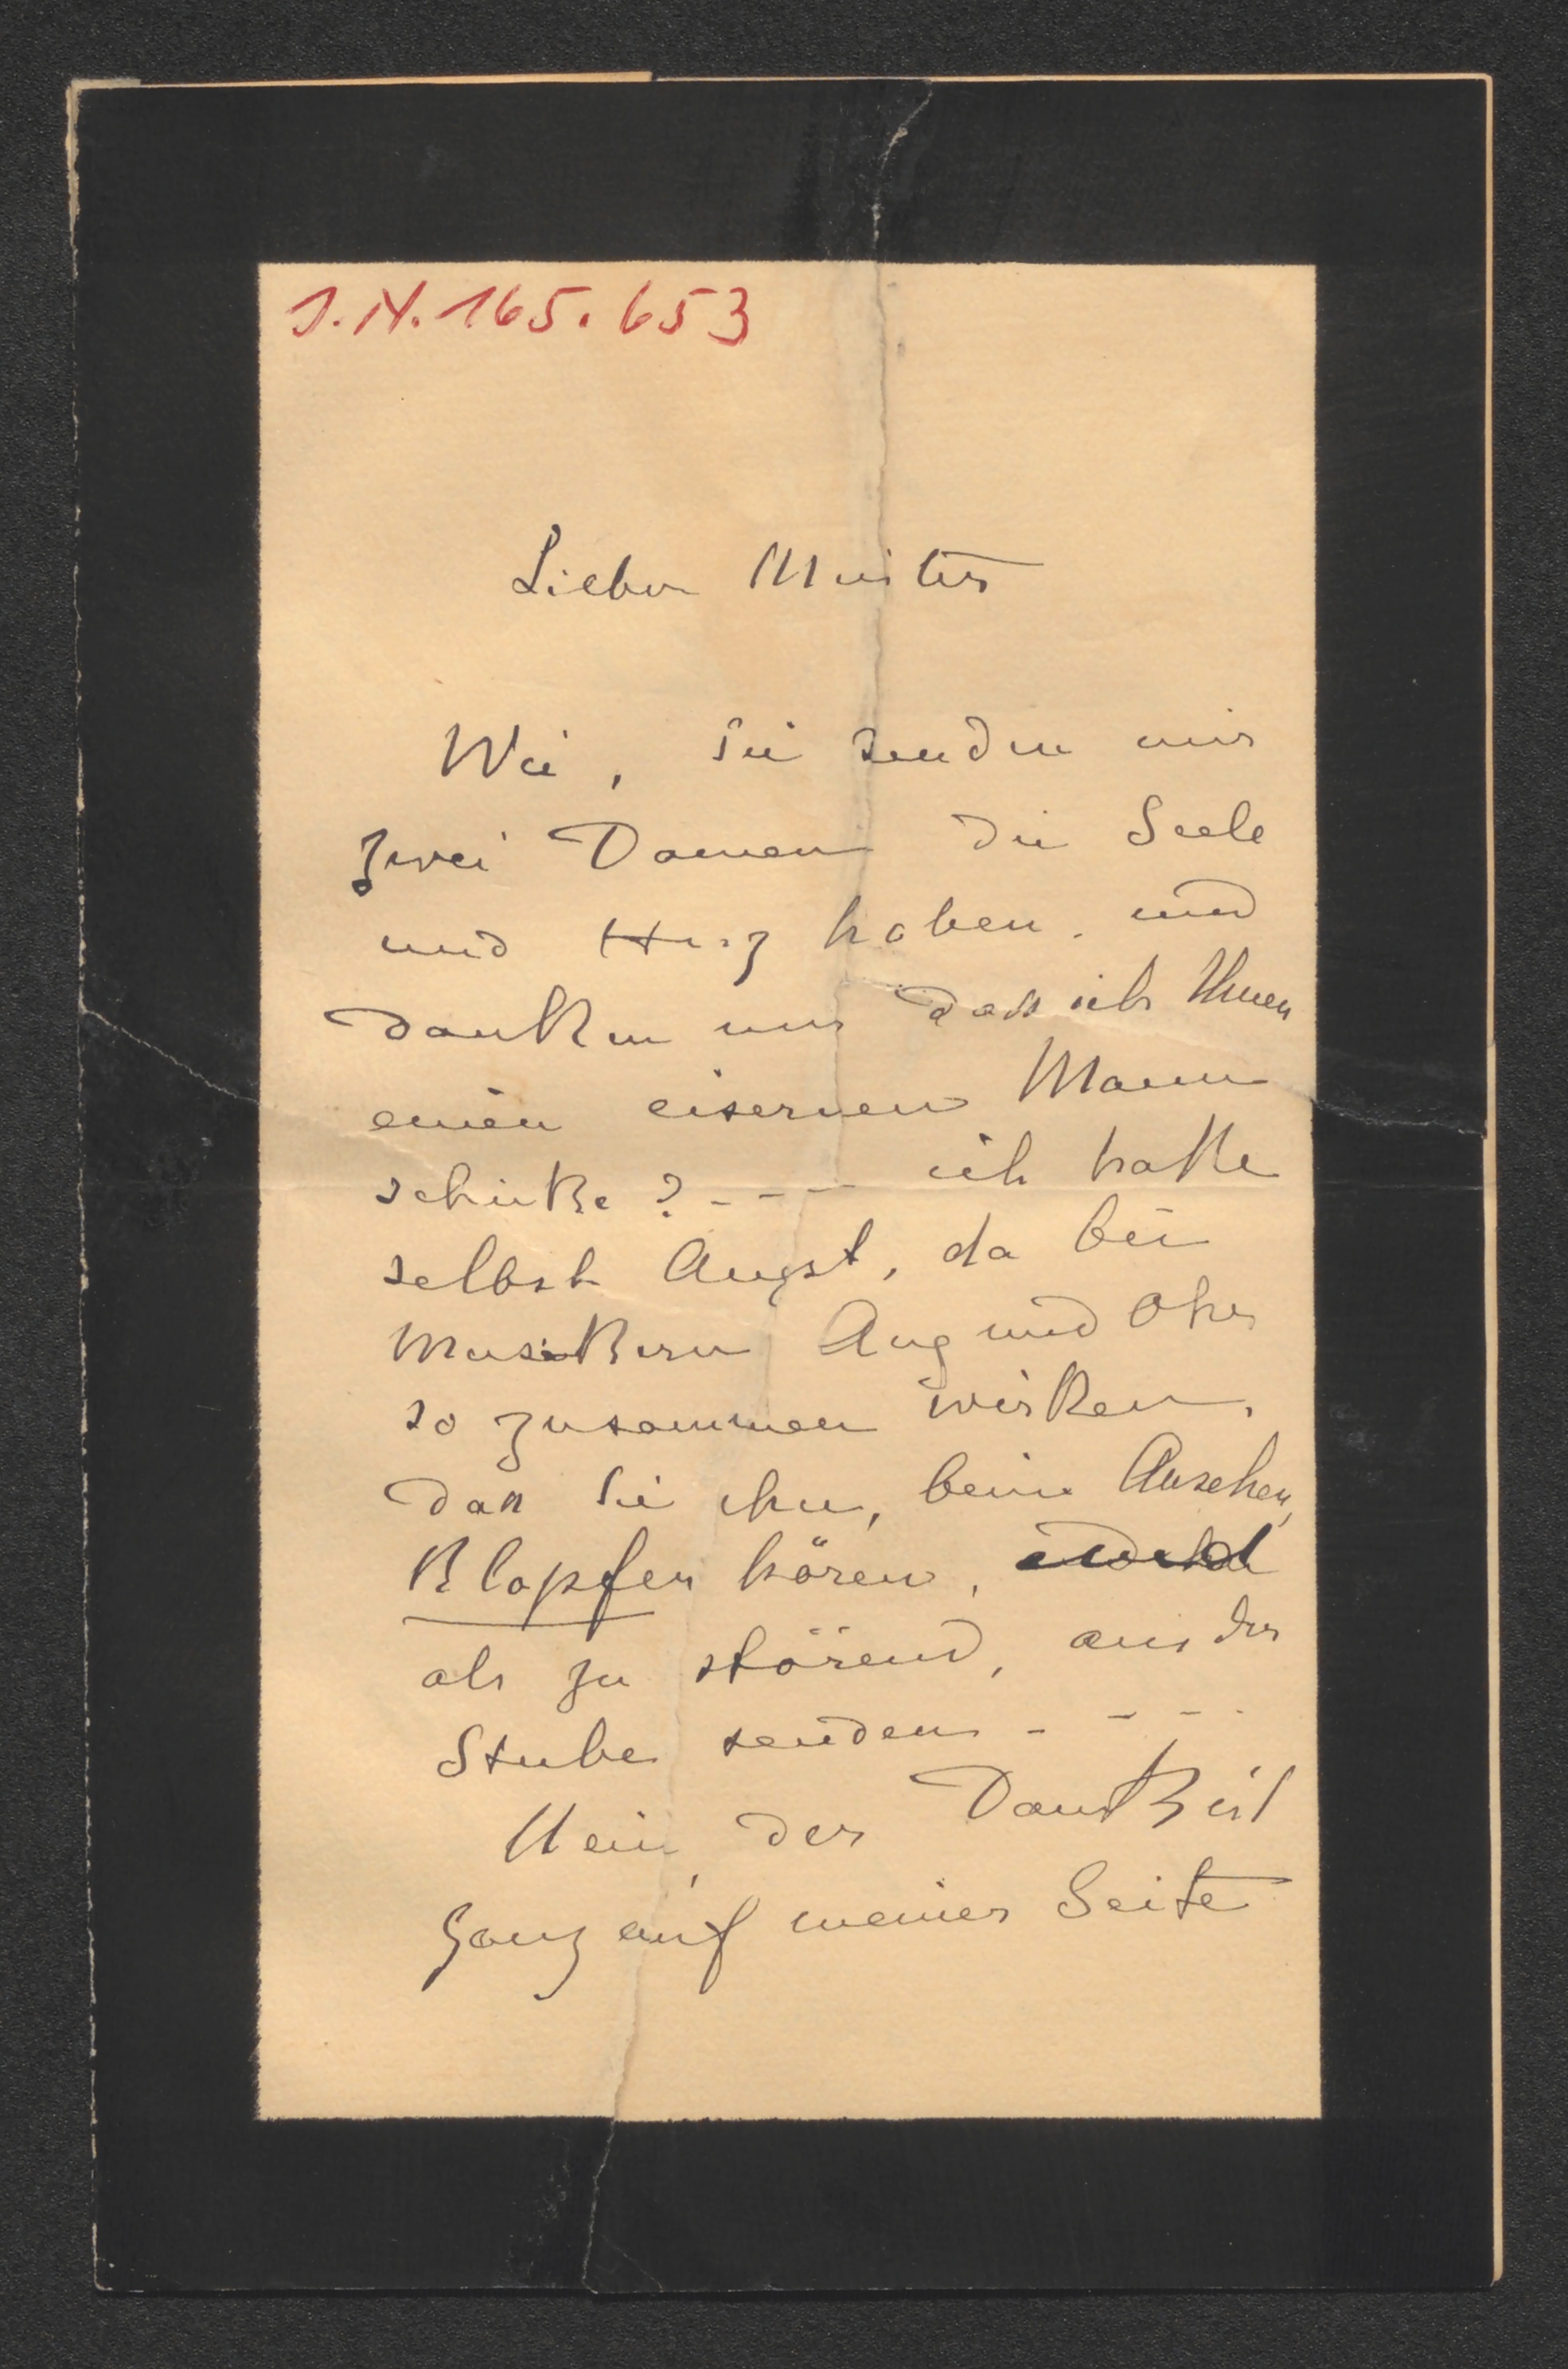 J.N. 165.653
Lieber Meister
Wie, Sie senden mir
zwei Damen die Seele
und Herz haben, und
danken mir dass ich Ihnen
einen eisernen Mann
schicke? - - - ich hatte
selbst Angst, da bei
Musikern Aug und Ohr
so zusammen wirken,
dass Sie ihn, beim Ansehen,
Klopfen hören,
als zu störend, aus der
Stube senden - - - -
Nein, der Dank ist
ganz auf meiner Seite